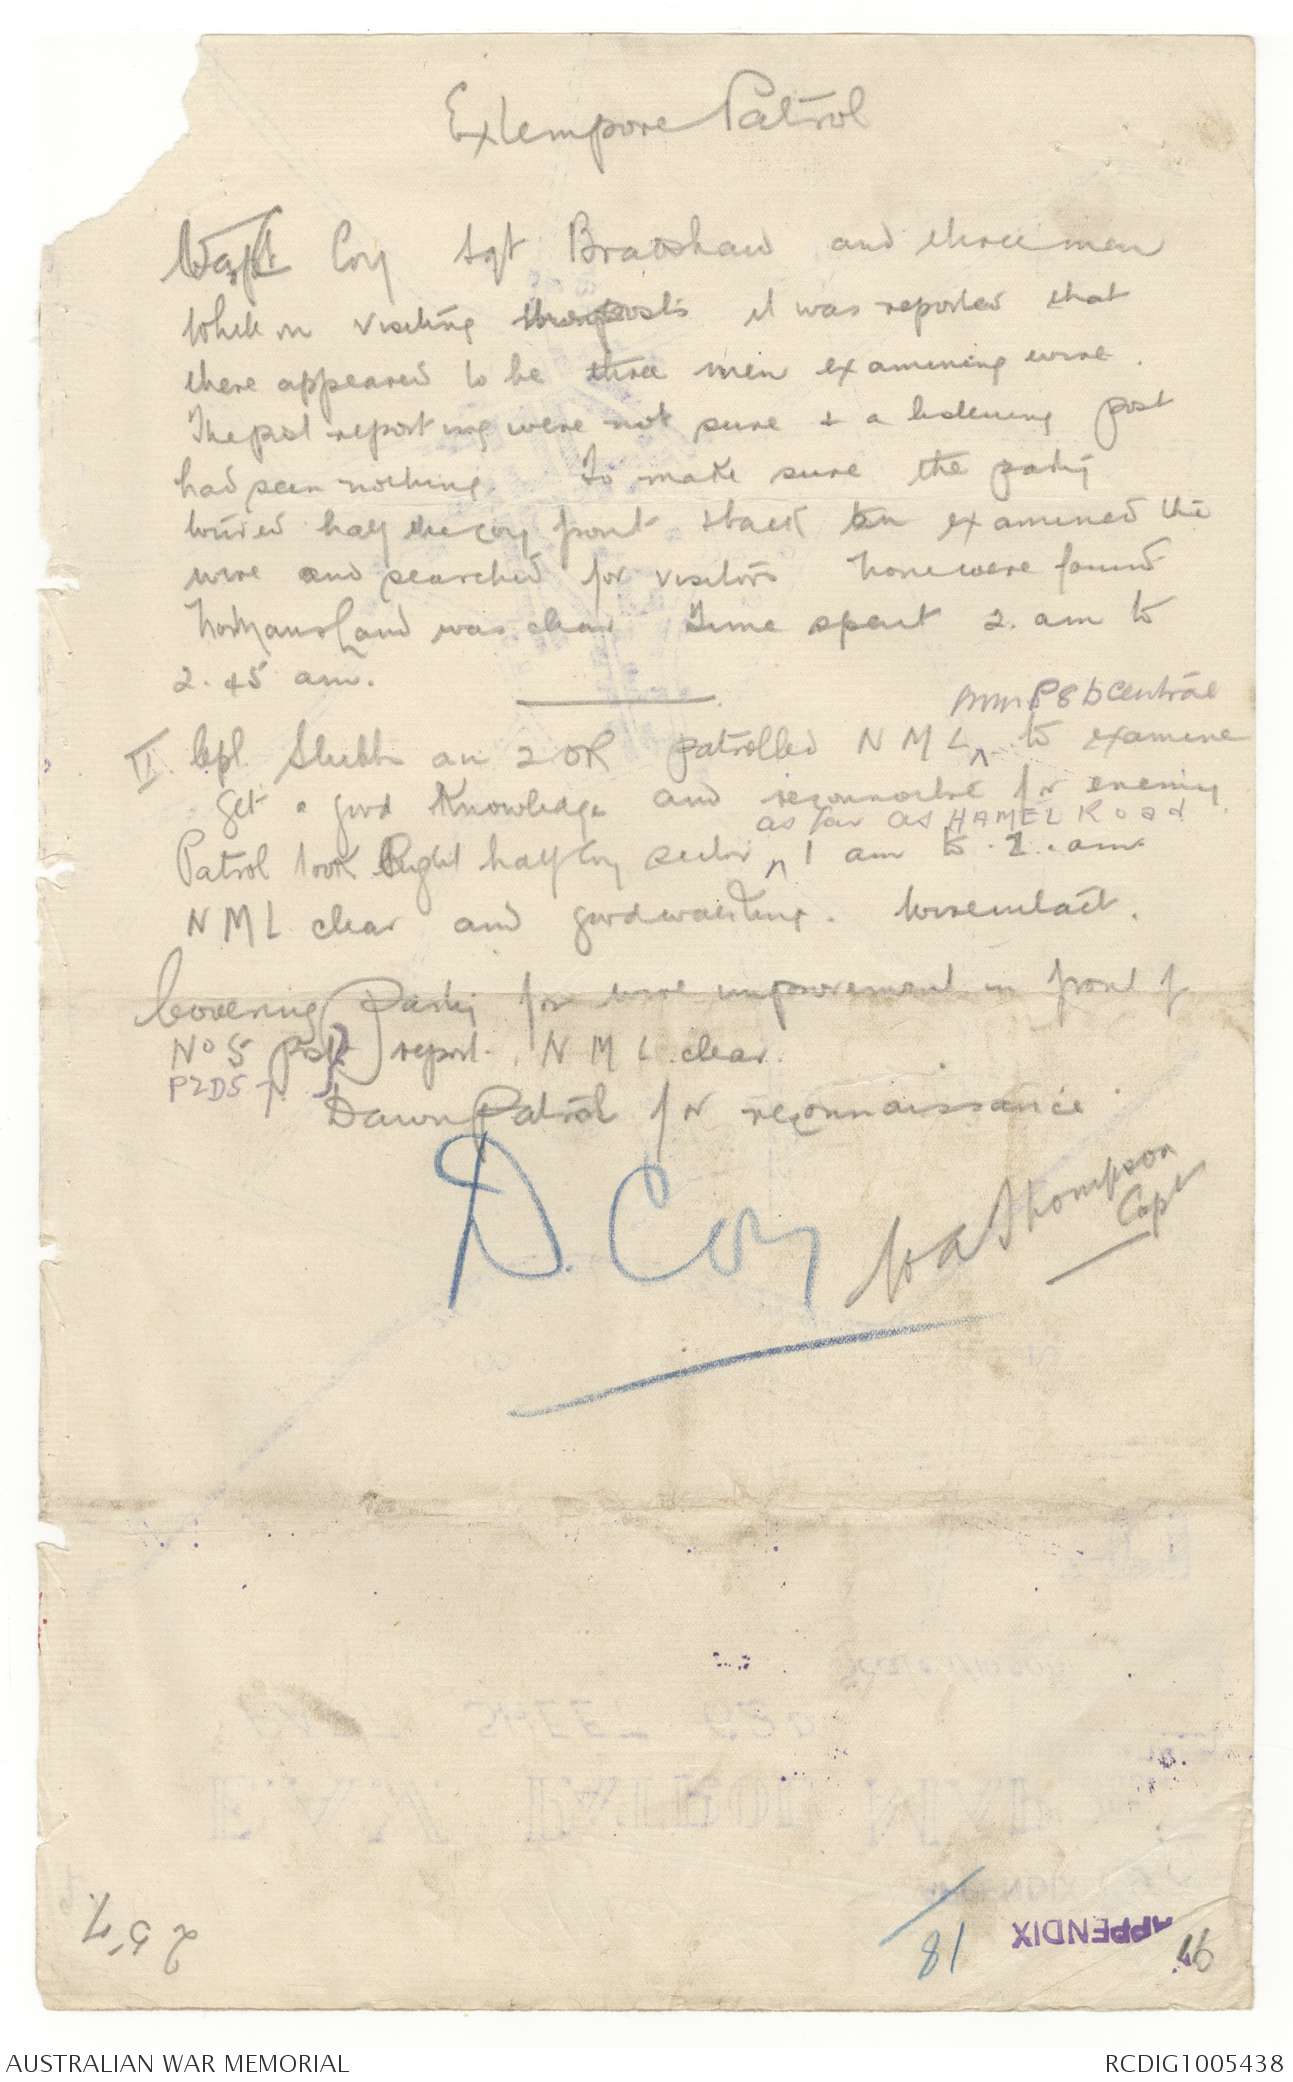 Extempore Patrol
Coy Sgt Bradshaw and three men
When on visiting posts it was reported that
there appeared to be three men examining wire.
The post reporting were not sure & a listening post
had seen nothing. To make sure the party
half the coy front & back examined the
wire and searched for visitors None were found
NoMansLand was clear Time spent 2. am to
2. 45 am.
P8b Central
II. Cpl. Stubbs an 2 OR patrolled N M L ^ to examine
get a good knowledge and reconnoitre for enemy
as far as HAMEL ROAD.
Patrol took Right half Coy sector ^ 1 am to 2. am.
N M L clear and good Wire intact.
Covering Party for wire improvement in front of
No 5 post report. N M L clear.
P2D57.
Dawn Patrol for reconnaissance
D. Coy
W A Thompson
Capt
257.
18
APPENDIX
AUSTRALIAN WAR MEMORIAL
RCDIG1005438